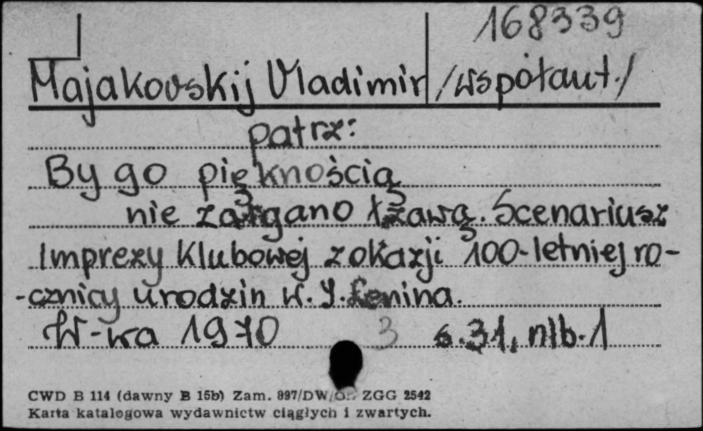 168339
Majakovskij Vladimir /współaut./
patrz:
By go pięknością
nie zatrgano łzawą. Scenariusz
Imprezy Klubowej z okazji 100-letniej ro-
-cznicy urodzin W. I. Lenina.
W-wa 1970 3 s. 31, nlb. 1
CWD B 114 (dawny B 15b) Zam. 897/DW ZGG 2542
Karta katalogowa wydawnictw ciągłych i zwartych.